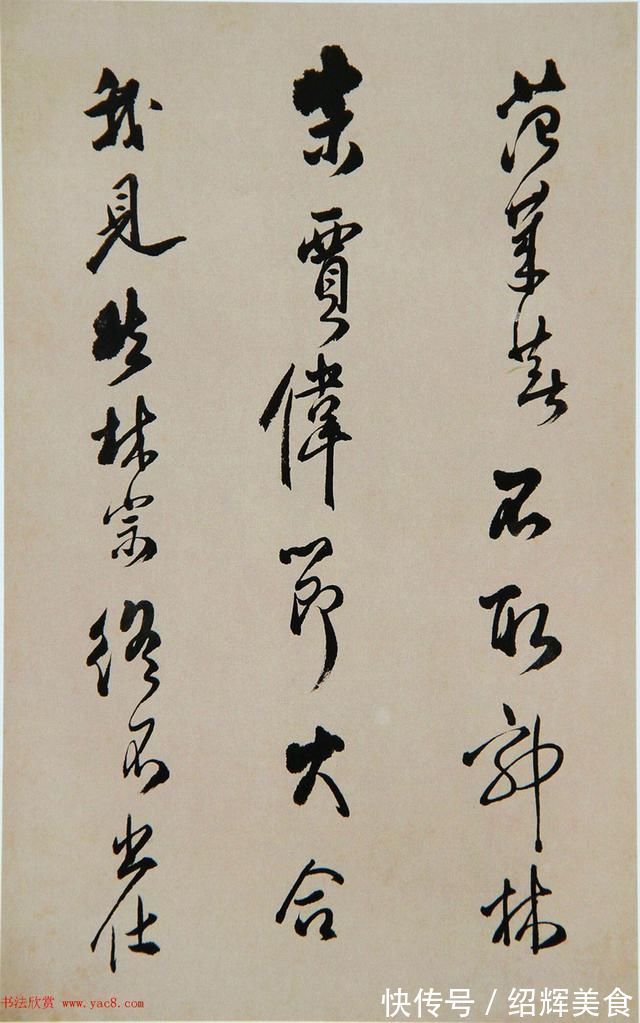 范不取郭林
宗賈偉節大合
我見然林宗終不出仕
书法欣赏 www.yac8.com
快传号/绍辉美食